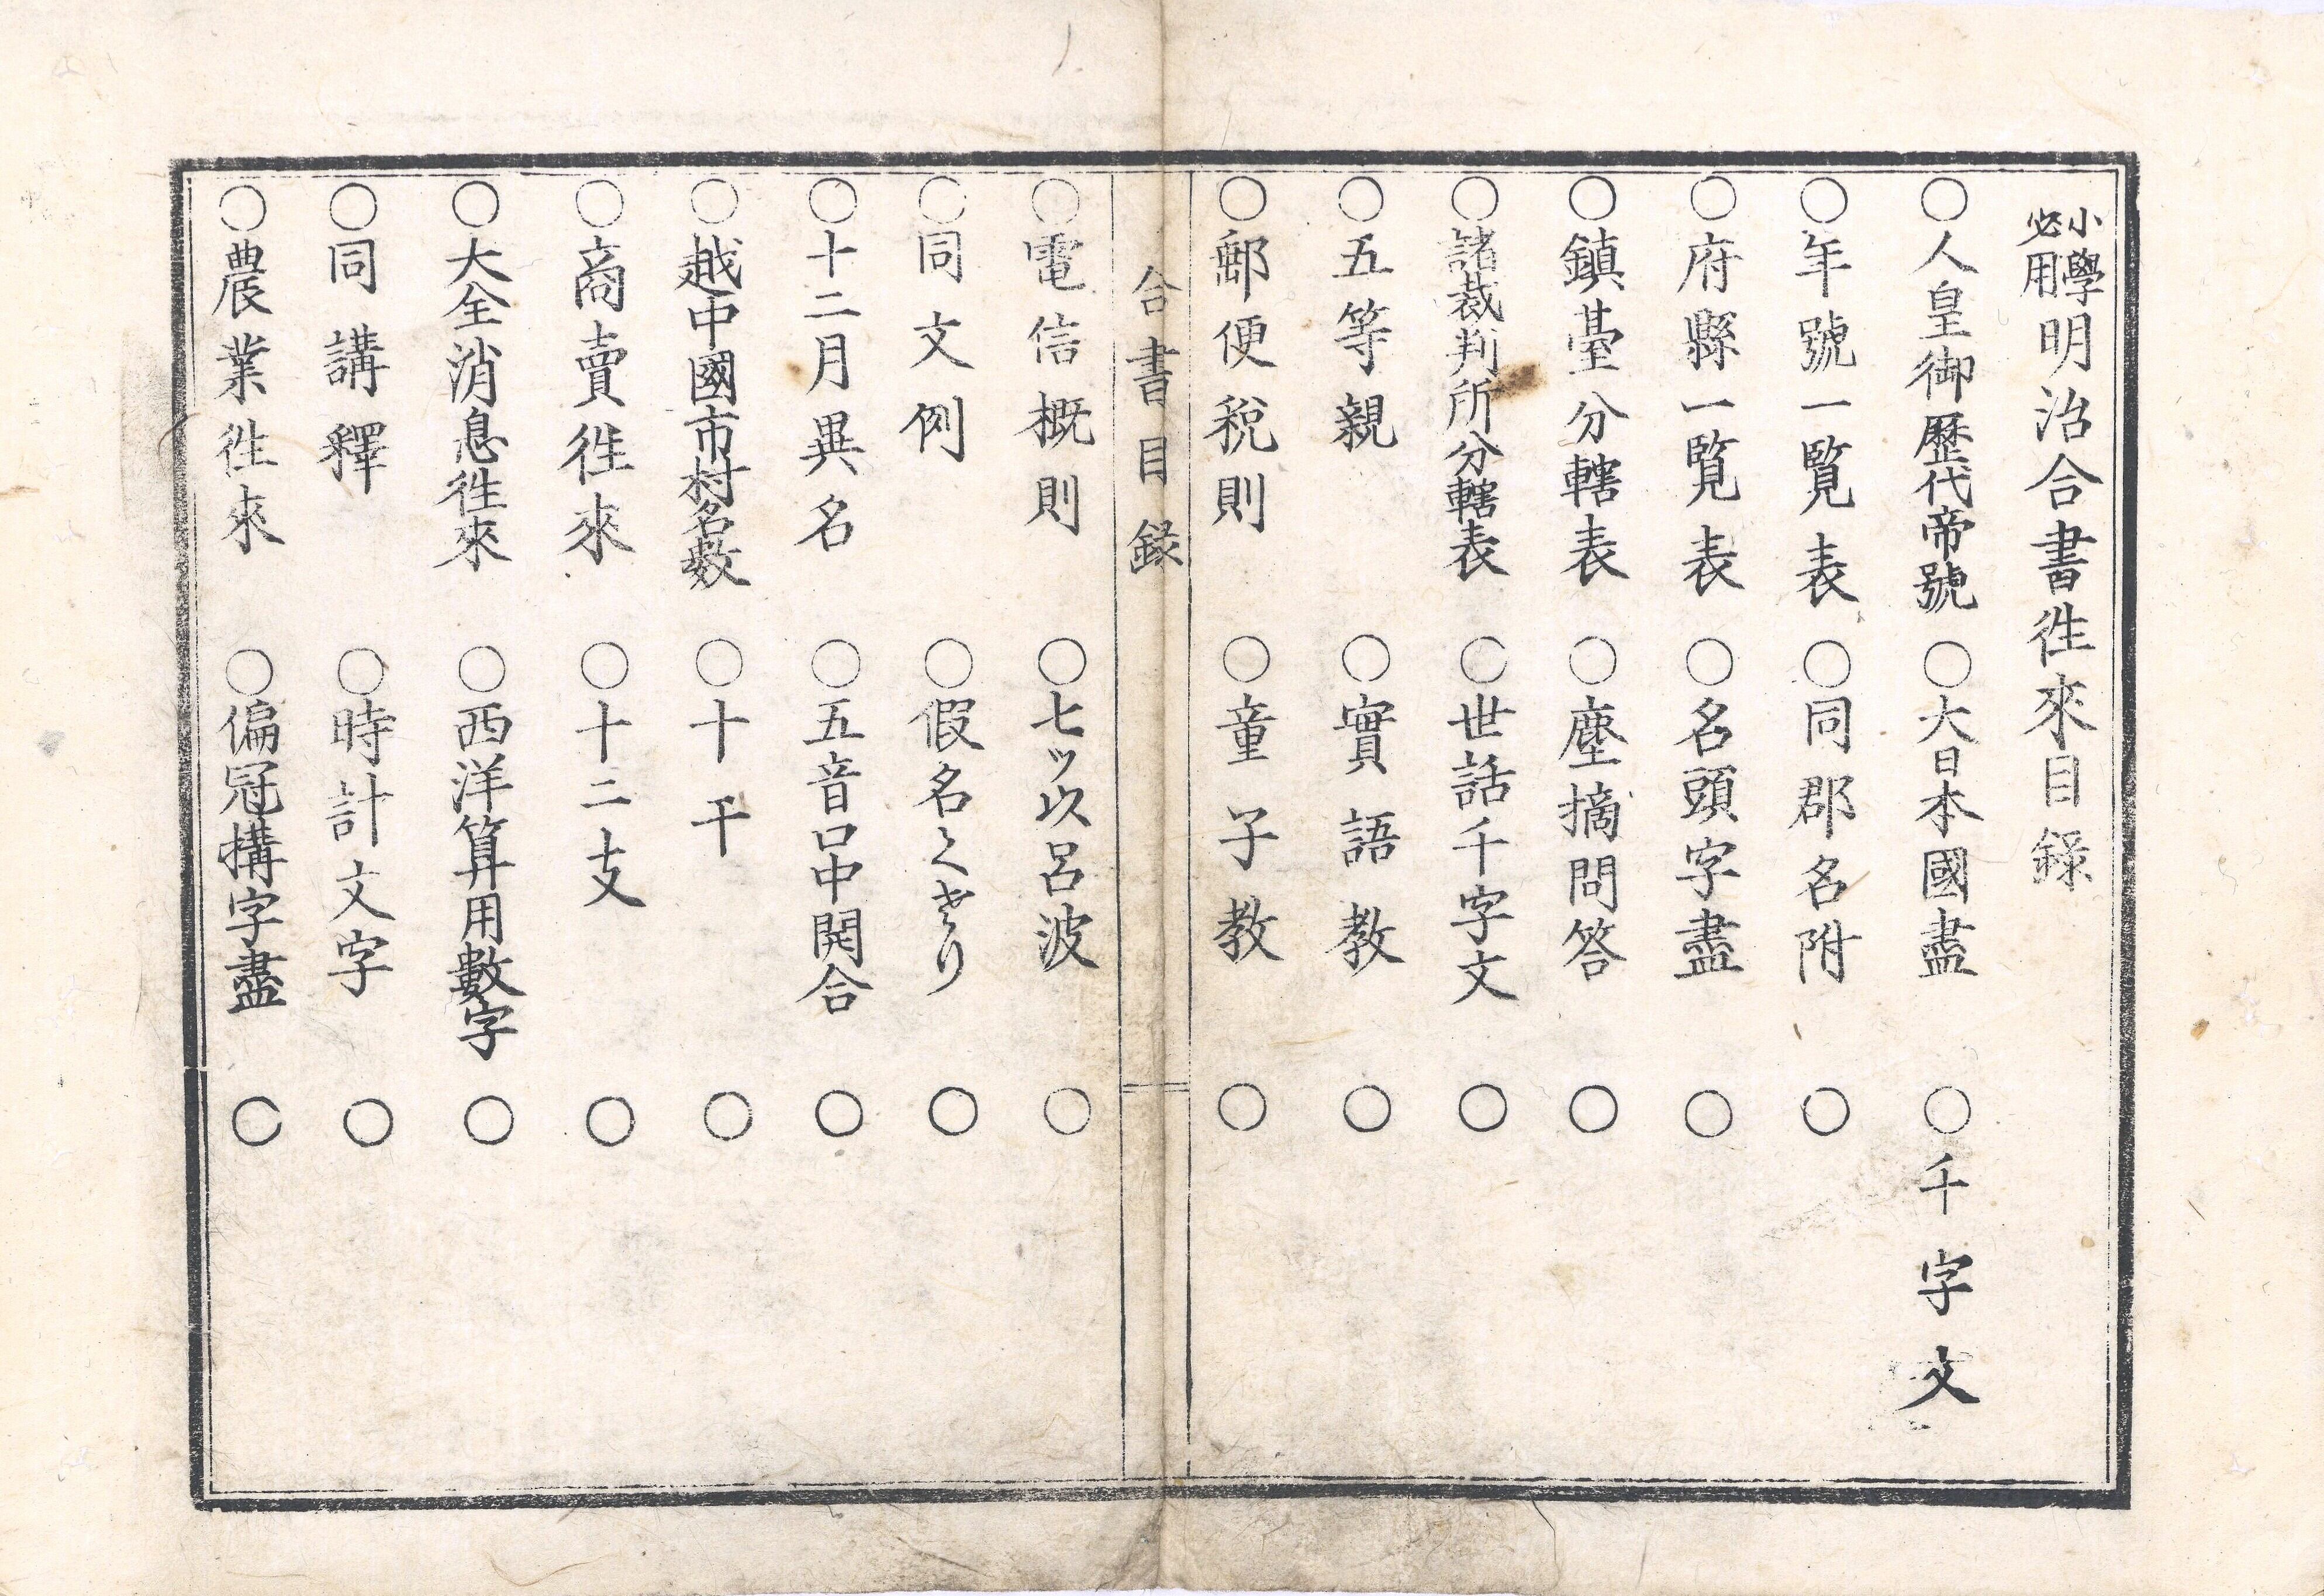 小學必用明治合書徃來目録
○人皇御歷代帝號　○大日本國盡　○千字文
○年號一覧表　○同郡名附　○
○府縣一覧表　○名頭字盡　○
○鎮臺分轄表　○塵摘問答　○
○諸裁判所分轄表　○世話千字文　○
○五等親　○實語教　○
○郵便税則　○童子教　○
合書目録
○電信概則　○七ッ以呂波　○
○同文例　○假名くぎり　○
○十二月異名　○五音口中開合　○
○越中國市村名数　○十干　○
○商賣徃來　○十二支　○
○大全消息徃來　○西洋算用數字　○
○同講釋　○時計文字　○
○農業徃來　○偏冠構字盡　○